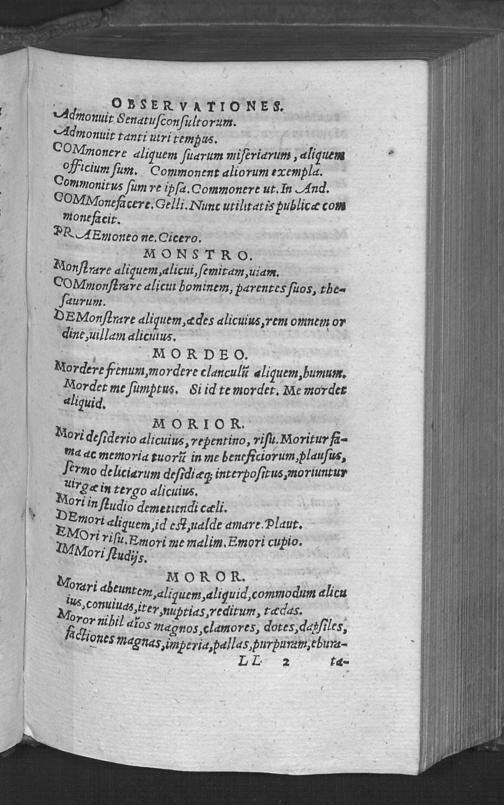 OBSERVATIONES.
Admonuit Senatusconsultorum.
Admonuit tanti uiri tempus.
COMmonere aliquem suarum miseriarum, aliquem
officium sum. Commonent aliorum exempla.
Commonitus sum re ipsa. Commonere ut. In And.
COMMonefacere. Gelli. Nunc utilitatis publicæ com
monefacit.
PRAEmoneo ne. Cicero.
MONSTRO.
Monstrare aliquem, alicui, semitam, uiam.
COMmonstrare alicui hominem, parentes suos, the-
saurum.
DEMonstrare aliquem, ædes alicuius, rem omnem or
dine, uillam alicuius.
MORDEO.
Mordere frenum, mordere clanculũ aliquem, humum.
Mordet me sumptus. Si id te mordet. Me mordet
aliquid.
MORIOR.
Mori desiderio alicuius, repentino, risu. Moritur fa-
ma ac memoria tuorũ in me beneficiorum, plausus,
sermo deliciarum desidiæq; interpositus, moriuntur
uirgæ in tergo alicuius.
Mori in studio demetiendi cæli.
DEmori aliquem, id est, ualde amare. Plaut.
EMOri risu. Emori me malim. Emori cupio.
IMMori studijs.
MOROR.
Morari abeuntem, aliquem, aliquid, commodum alicu
ius, conuiuas, iter, nuptias, reditum, tædas.
Moror nihil aĩos magnos, clamores, dotes, dapsiles,
factiones magnas, imperia, pallas, purpuram, ebura-
LL 2 ta-